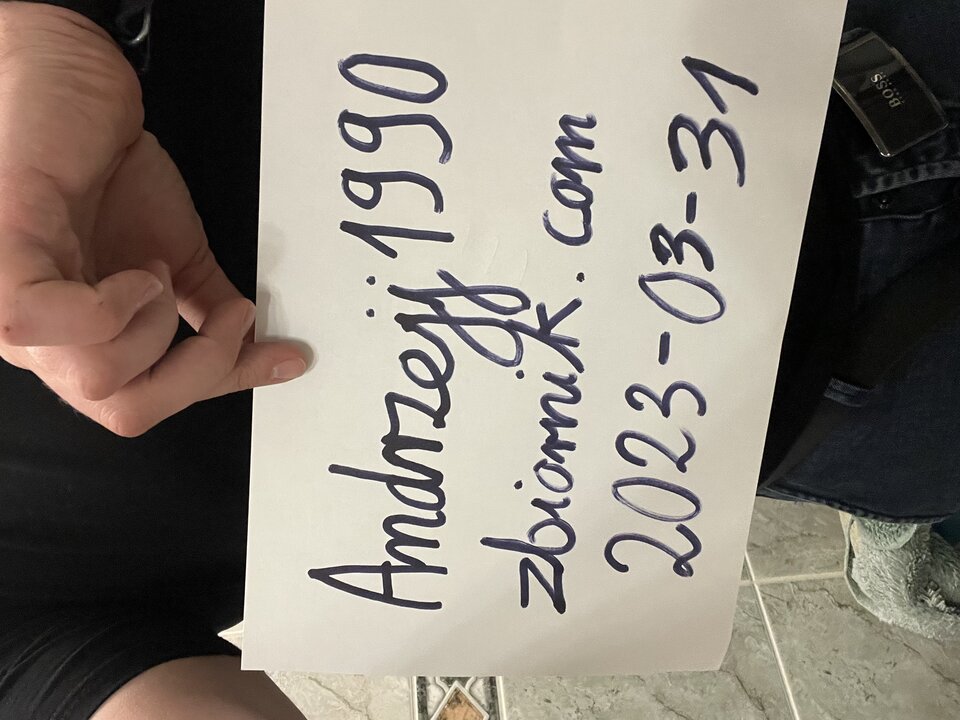 Andrzejj1990
zbiornik.com
2023-03-31
BOSS